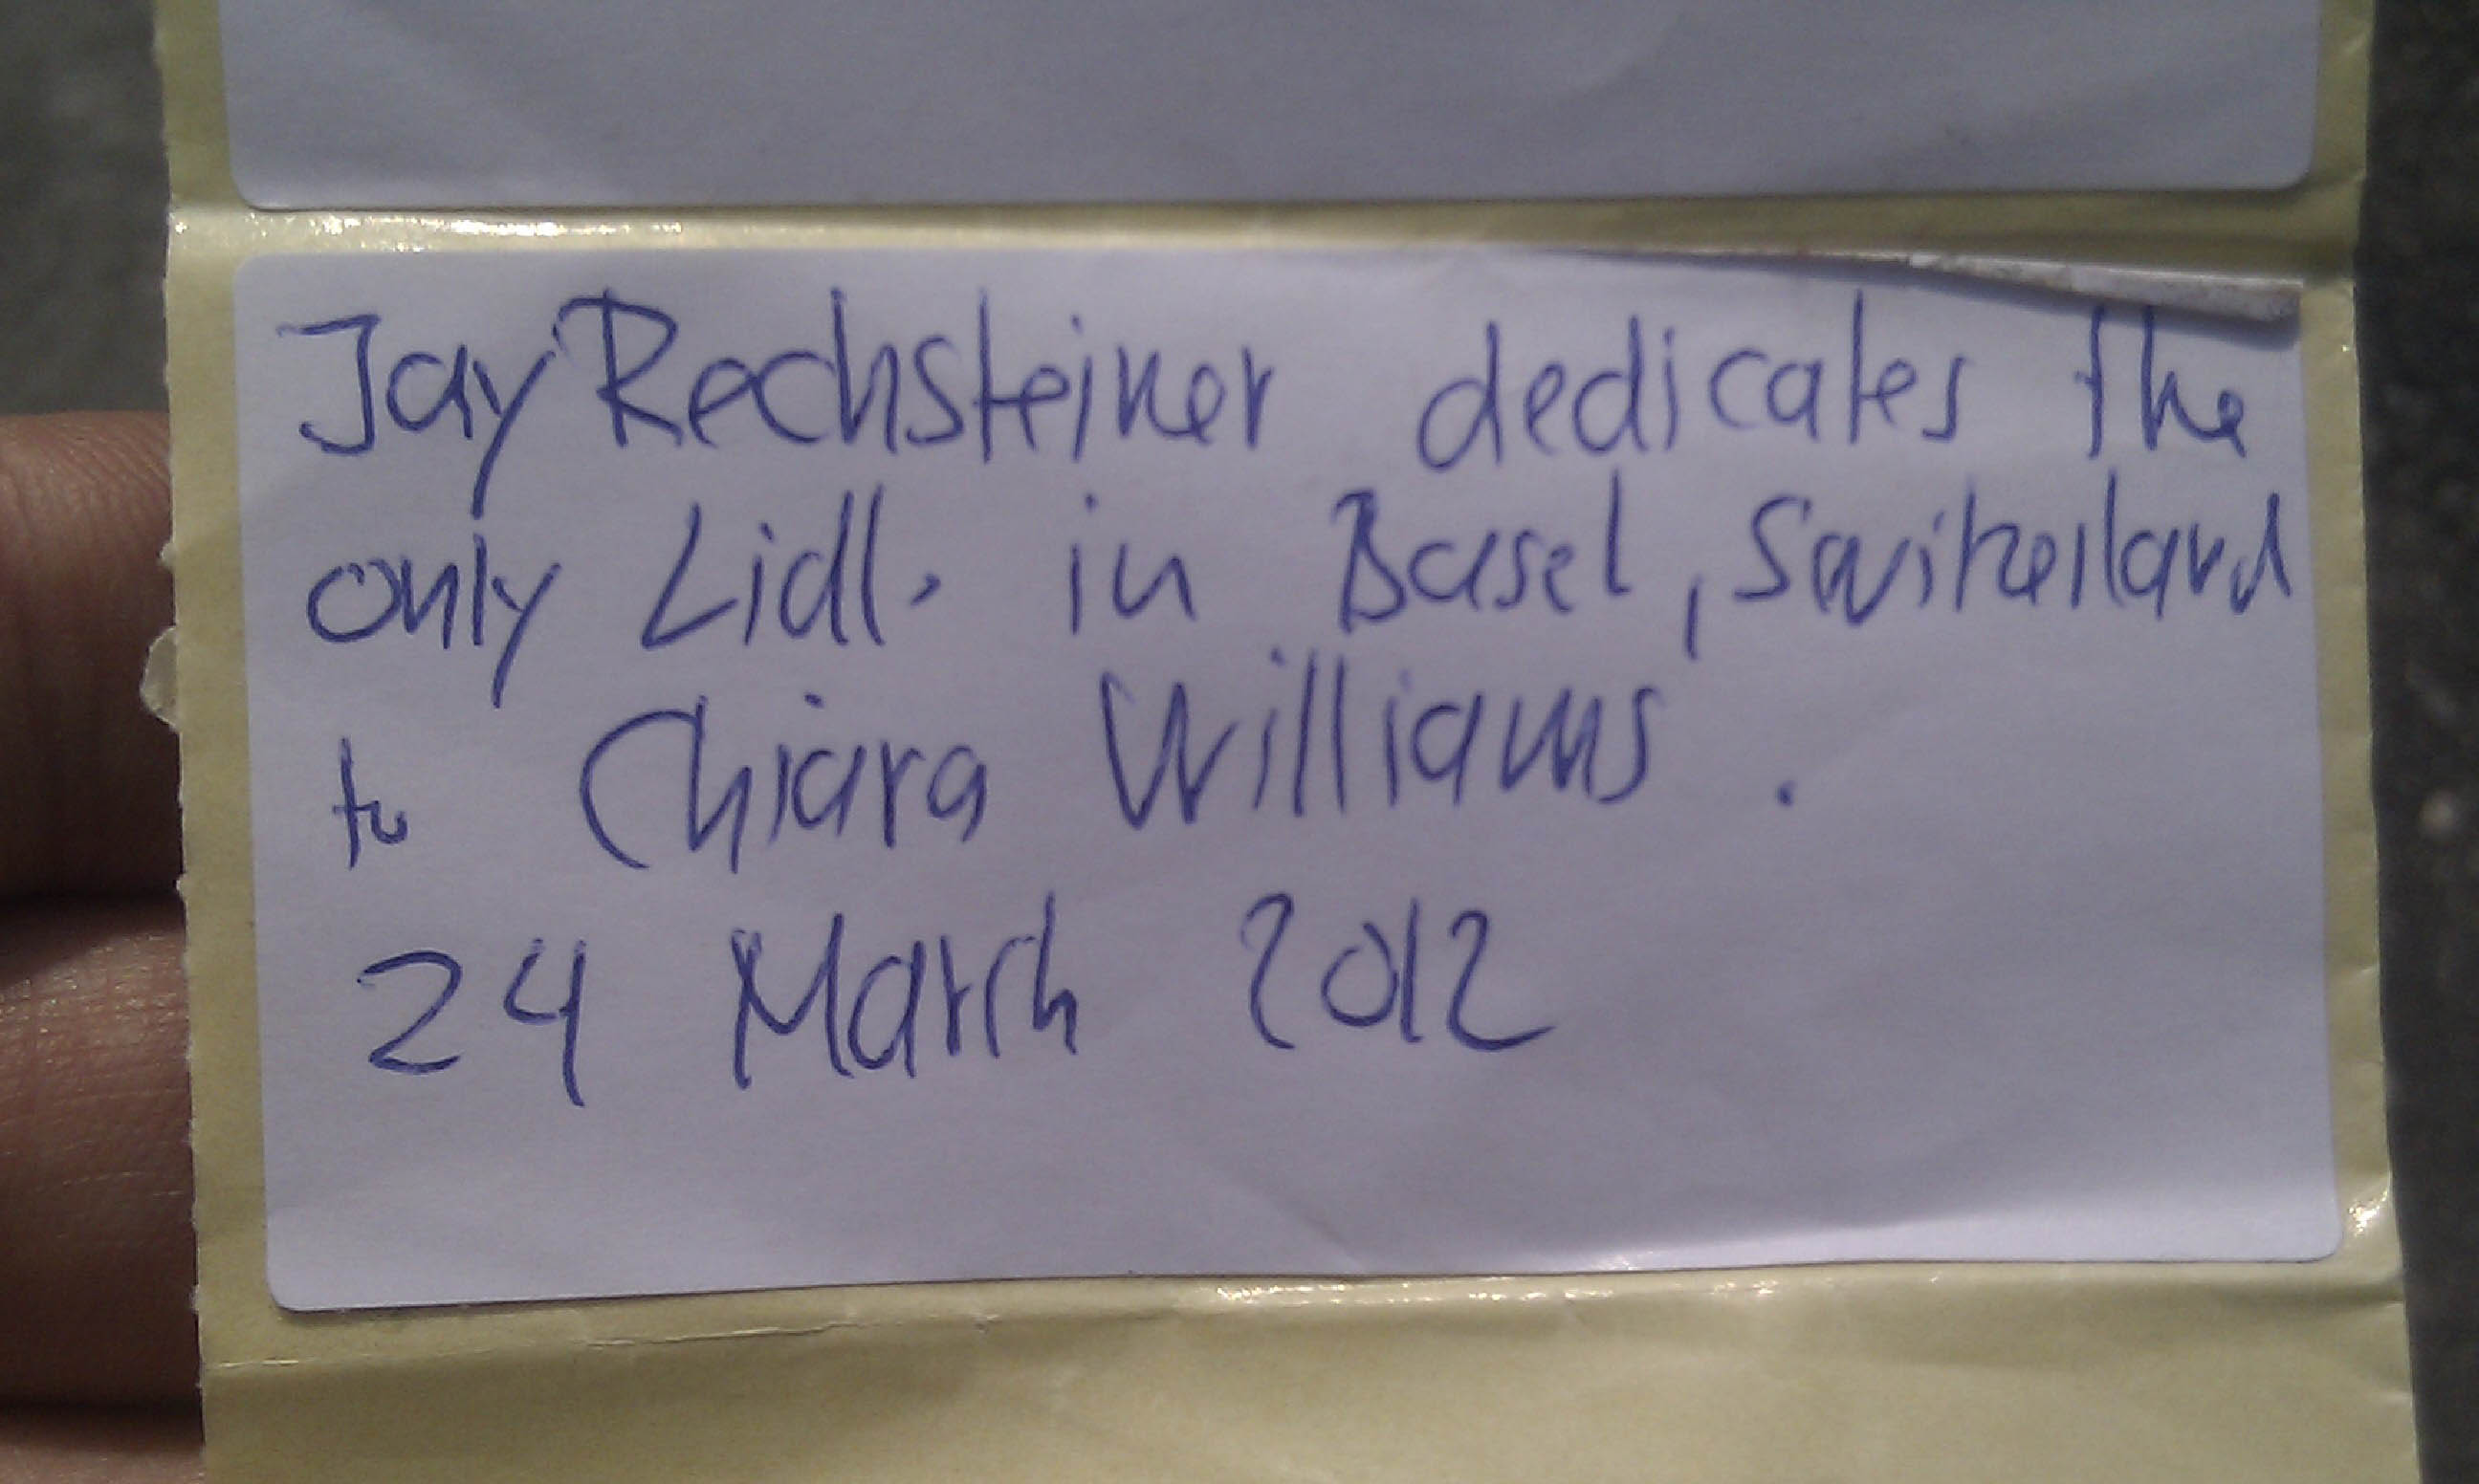 Jay Rechsteiner dedicates the
only Lidl. in Basel, Switzerland
to Chiara Williams.
24 March 2012